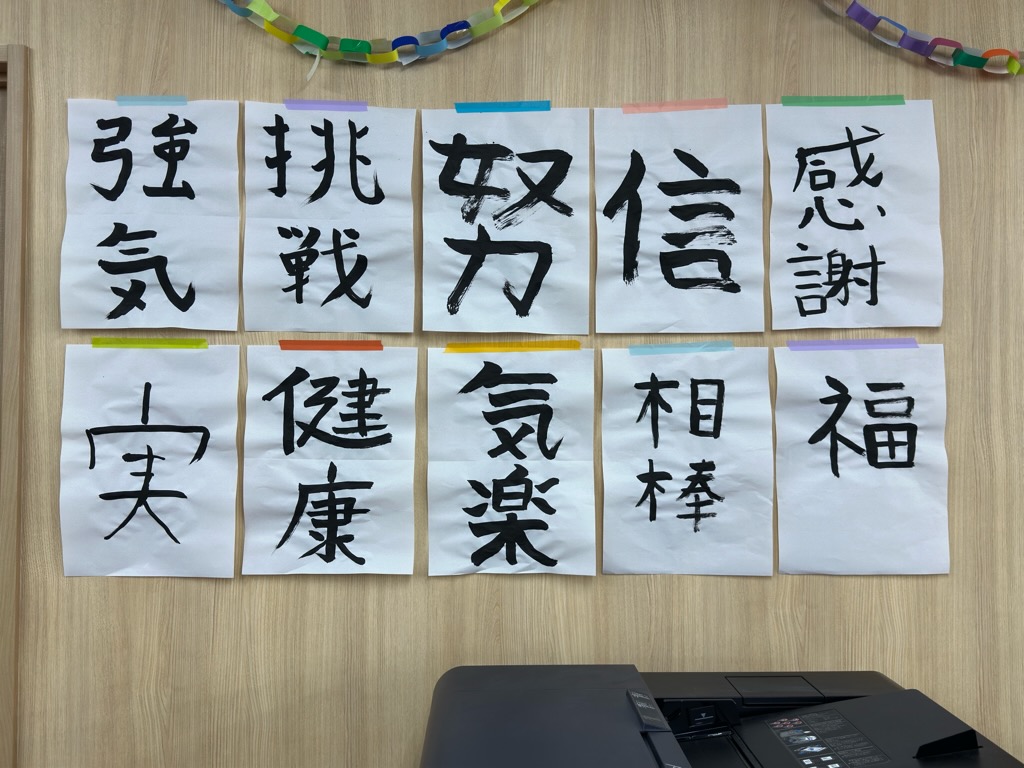 強気
挑戦
努力
信
感謝
実
健康
気楽
相棒
福